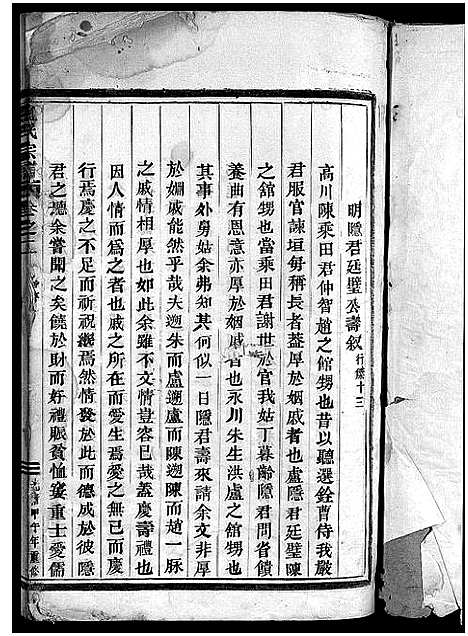 明隱君廷璧公壽敘 行儀十三
高川陳乘田君仲智趙之館甥也昔以聽選銓曹侍我嚴
君服官諫垣每稱長者蓋厚於姻戚者也盧隱君廷璧陳
之館甥也當乘田君謝世於官我姑丁暮齡隱君問省饋
養曲有恩意亦厚於姻戚者也永川朱生洪盧之館甥也
其事外舅姑余弗知其何似一日隱君壽來請余文非厚
於姻戚能然乎哉夫遡朱而盧遡盧而陳遡陳而趙一脈
之戚情相厚也如此余雖不文情豈容已哉蓋慶壽禮也
因人情而為之者也戚之所在而愛生焉愛之無已而慶
行焉慶之不足而祈祝繼焉然情發於此而德成於彼隱
君之德余嘗聞之矣饒於財而好禮賑貧恤寠重士愛儒
氏宗譜 卷之二
光緒甲午年重修